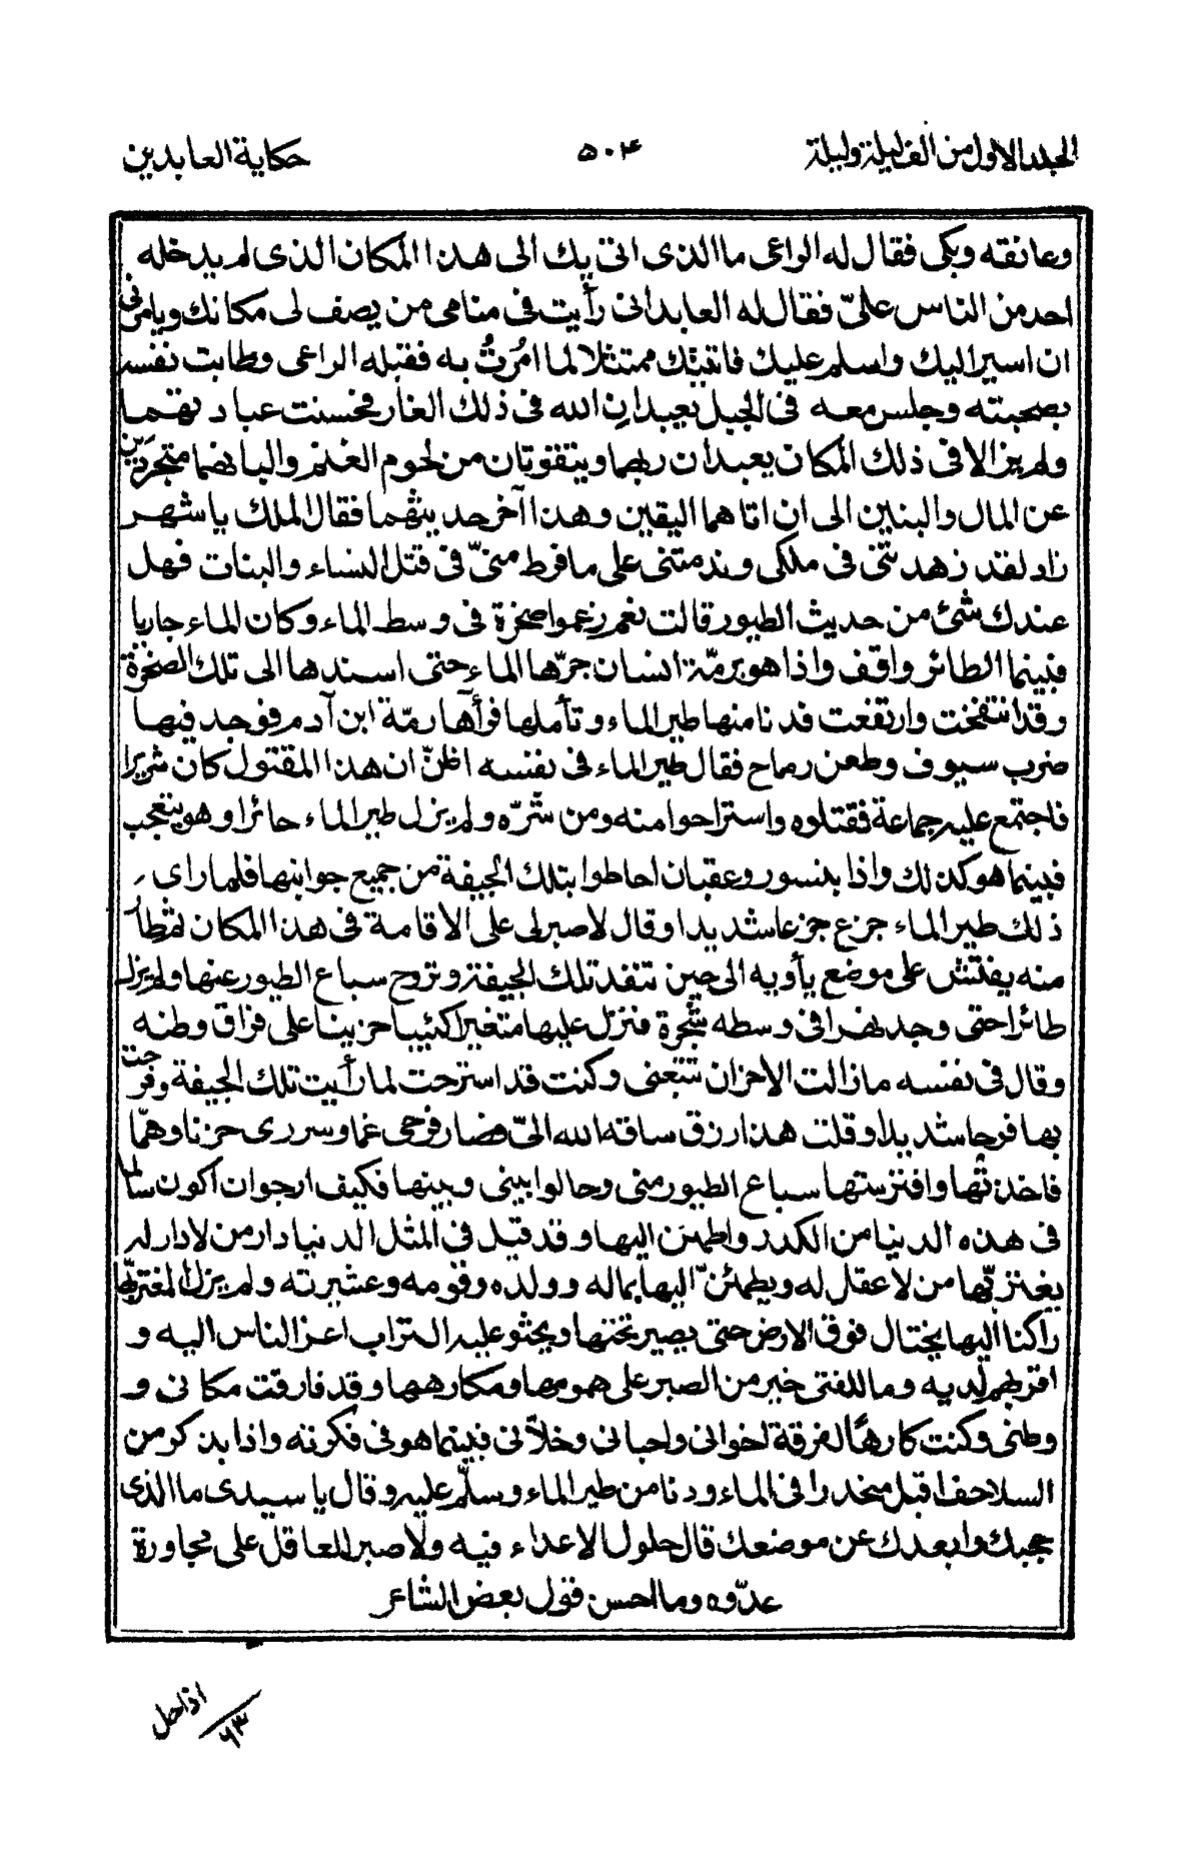 المجلد الاول من الف ليلة وليلة ٥٠٤ حكاية العابدين
وعانقه وبكى فقال له الراعى ما الذى اتى بك الى هذا المكان الذى لم يدخله
احد من الناس علىّ فقال له العابد انى رأيت فى منامى من يصف لى مكانك ويامرنى
ان اسير اليك واسلم عليك فاتيتك ممتثلا لما امُرتُ به فقبله الراعى وطابت نفسه
بصحبته وجلس معه فى الجبل يعبدانِ الله فى ذلك الغار فحسنت عبادتهما
ولم يزالا فى ذلك المكان يعبدان ربهما ويتقوتان من لحوم الغنم والبانهما متجردَين
عن المال والبنين الى ان اتاهما اليقين وهذا آخر حديثهما فقال الملك يا شهر
زاد لقد زهدتنى فى ملكى وندمتنى على ما فرط منىّ فى قتل النساء والبنات فهل
عندك شئ من حديث الطيور قالت نعم زعموا صخرة فى وسط الماء وكان الماء جاريا
فبينما الطائر واقف واذا هو برمّة انسان جرّها الماء حتى اسندها الى تلك الصخرة
وقد انتفخت وارتفعت فدنا منها طير الماء وتأملها فرأها رمّة ابن آدم فوجد فيها
ضرب سيوف وطعن رماح فقال طير الماء فى نفسه اظنّ ان هذا المقتول كان شريرا
فاجتمع عليه جماعة فقتلوه واستراحوا منه ومن شرّه ولم يزل طير الماء حائرا وهو يتعجب
فبينما هو كذلك واذا بنسور وعقبان احاطوا بتلك الجيفة من جميع جوانبها فلما راى
ذلك طير الماء جزع جزعا شديدا وقال لا صبر لى على الاقامة فى هذا المكان ثم طار
منه يفتش على موضع يأويه الى حين تنفد تلك الجيفة وتروح سباع الطيور عنها ولم يزل
طائرا حتى وجد نهرا فى وسطه شجرة فنزل عليها متغيرا كئيبا حزينا على فراق وطنه
وقال فى نفسه ما زالت الاحزان تتبعنى وكنت قد استرحت لما رأيت تلك الجيفة وفرحت
بها فرحا شديدا وقلت هذا رزق ساقه الله الىّ فصار فرحى غما وسرورى حزنا وهمّا
فاخذتها وافترستها سباع الطيور منى وحالوا بينى وبينها فكيف ارجو ان اكون سالما
فى هذه الدنيا من الكدر واطمئن اليها وقد قيل فى المثل الدنيا دار من لا دار له
يغتر بّها من لا عقل له ويطمئنّ اليها بماله وولده وقومه وعشيرته ولم يزل المغتر بها
راكنا اليها يختال فوق الارض حتى يصير تحتها ويحثو عليه التراب اعز الناس اليه و
اقربهم لديه وما للفتى خير من الصبر على همومها ومكارهها وقد فارقت مكانى و
وطنى وكنت كارهاً لفرقة اخوانى واحبائى وخلّانى فبينما هو فى فكرته واذا بذكر من
السلاحف اقبل منحدرا فى الماء ودنا من طير الماء وسلّم عليه وقال يا سيدى ما الذى
حجبك وابعدك عن موضعك قال حلول الاعداء فيه ولا صبر للعاقل على مجاورة
عدّوه وما احسن قول بعض الشاعر
اذا حل
٦٣